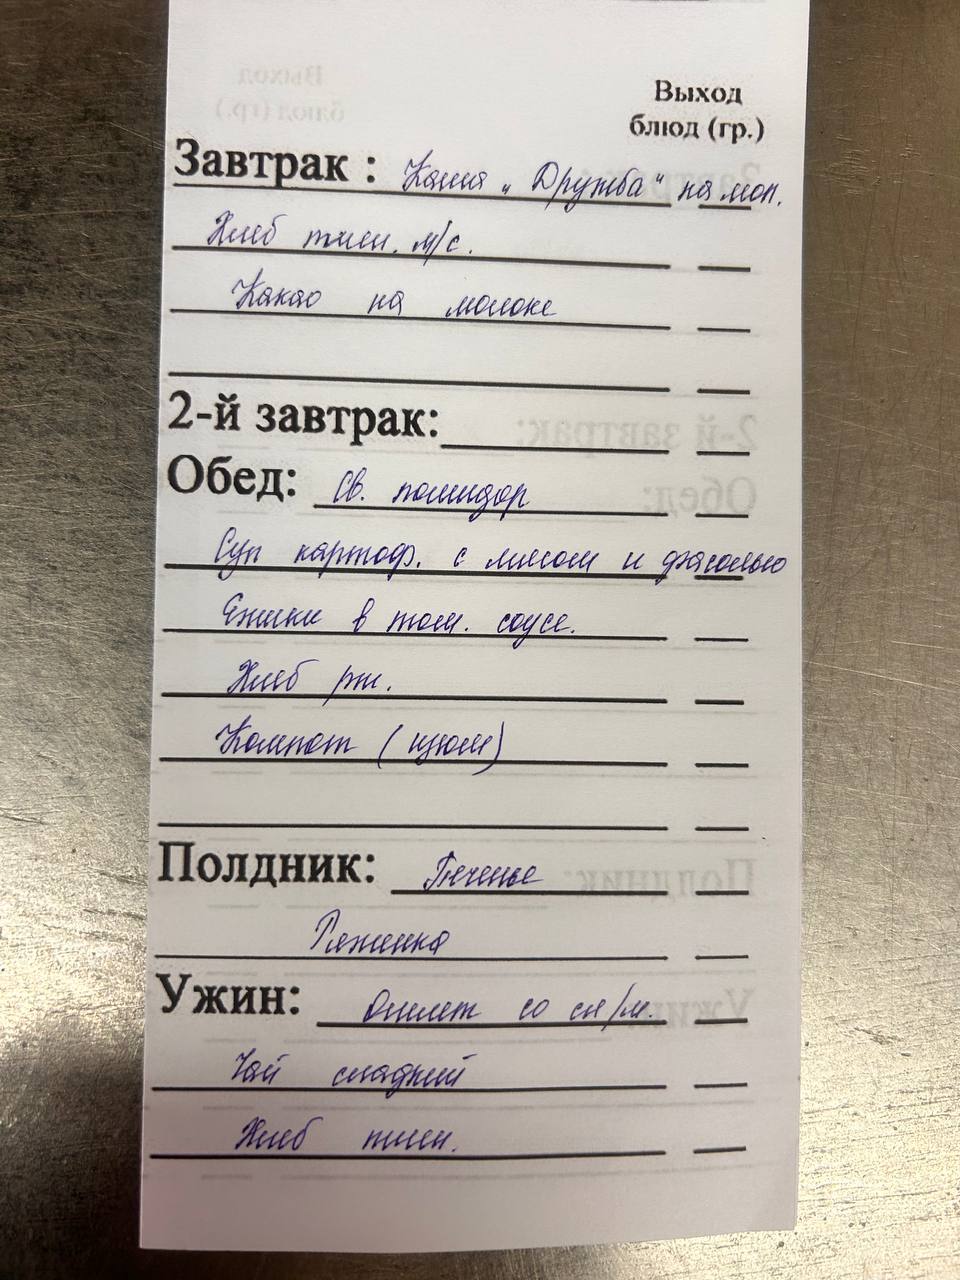 Выход
блюд (гр.)
Завтрак : Каша „Дружба" на мол.
Хлеб пшен. м/с.
Какао на молоке
2-й завтрак:
Обед: Св. помидор
Суп картоф. с мясом и фасолью
Ёжики в том. соусе.
Хлеб рж.
Компот (изюм)
Полдник: Печенье
Ряженка
Ужин: Омлет со сл/м.
Чай сладкий
Хлеб пшен.